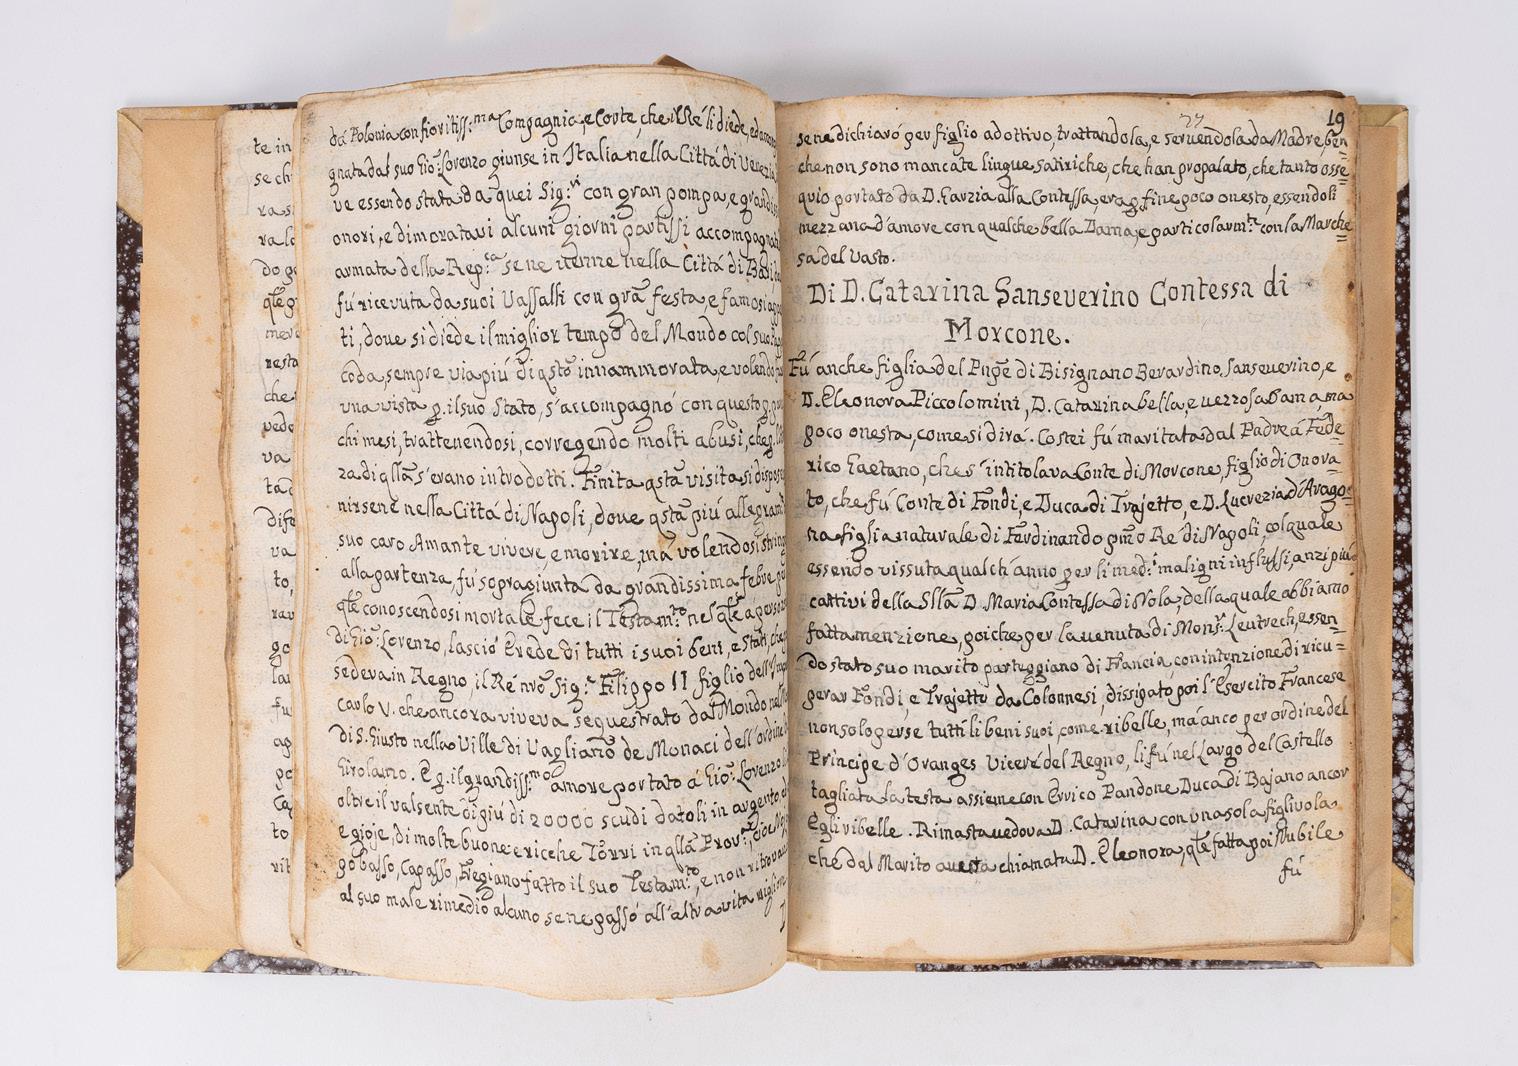 te in
se ch
ra s
ra lo
do g
qle g
mer
resta
che
vedo
va
tac
difo
va
to,
rav
go
la
fu
ag
po
Cag
to
rit
da Polonia con fioritiss:ma Compagnia, e Corte, che il Ré li diede, ed accom
gnata dal suo Gio: Lorenzo giunse in Italia nella Cittá di Venezia
ve essendo stata da quei Sig:ri con gran pompa, e grandis
onori, e dimoratavi alcuni giorni partissi accompagnat
armata della Rep:ca se ne venne nella Cittá di Bari,
fú ricevuta da suoi Vassalli con grã festa, e famosi
ti, dove si diede il miglior tempo del Mondo col suo
coda, sempre via piú di qsto innammorata, e volendo
una vista p. il suo Stato, s'accompagnó con questo p.
chi mesi, trattenendosi, corregendo molti abusi, che p.
ra di qlla s'erano introdotti. Finita qsta visita si dispose
nirsene nella Cittá di Napoli, dove qsta piú allegram
suo caro Amante vivere, e morire, má volendosi
alla partenza, fú sopragiunta da grandissima febre,
qle conoscendosi mortale fece il Testam:to nel qle a persona
di Gio: Lorenzo, lasció Erede di tutti i suoi beni, e Stati, che
sedeva in Regno, il Ré nro Sig:r Filippo II figlio dell'
Carlo V. che ancora viveva sequestrato dal Mondo nel
di S. Giusto nella Ville di Vagliano de Monaci dell'ordine
Girolamo. E p. il grandiss:mo amore portato á Gio: Lorenzo
oltre il valsente di piú di 20000 scudi datoli in argento,
e gioje, di molte buone e ricche Torri in qlla Prov:
gobasso, Capasso, Fregiano fatto il suo Testam:to, e non ritrovan
al suo male rimedio alcuno se ne passó all'altra vita
19
se ne dichiaró per figlio adottivo, trattandola, e servendola da Madre, ben=
che non sono mancate lingue satiriche, che han propalato, che tanto osse=
quio portato da D. Garzia alla Contessa, era p. fine poco onesto, essendoli
mezzana d'amore con qualche bella Dama, e particolarm:te con la Marche=
sa del Vasto.
Di D. Catarina Sanseverino Contessa di
Morcone.
Fú anche figlia del Pnpe di Bisignano Berardino Sanseverino, e
D. Eleonora Piccolomini, D. Catarina bella, e vezzosa Dama, ma
poco onesta, come si dirá. Costei fú maritata dal Padre á Fede=
rico Gaetano, che s'intitolava Conte di Morcone, figlio di Onora=
to, che fú Conte di Fondi, e Duca di Trajetto, e D. Lucrezia d'Arago=
na figlia naturale di Ferdinando pmo Re di Napoli, col quale
essendo vissuta qualch'anno per li med:i maligni influssi, anzi piú
cattivi della Slla D. Maria Contessa di Nola, della quale abbiamo
fatta menzione, poiche per la venuta di Mons:r Leutrech, essen=
do stato suo marito parteggiano di Francia, con intenzione di ricu=
perar Fondi, e Trajetto da Colonnesi, dissipato poi l'Esercito Francese
non solo perse tutti li beni suoi, come ribelle, má anco per ordine del
Principe d'Oranges Viceré del Regno, li fú nel Largo del Castello
tagliata la testa assieme con Errico Pandone Duca di Bojano ancor
Egli ribelle. Rimasta vedova D. Catarina con una sola figliuola
che dal Marito aveva chiamata D. Eleonora, qle fatta poi Nubile
fú